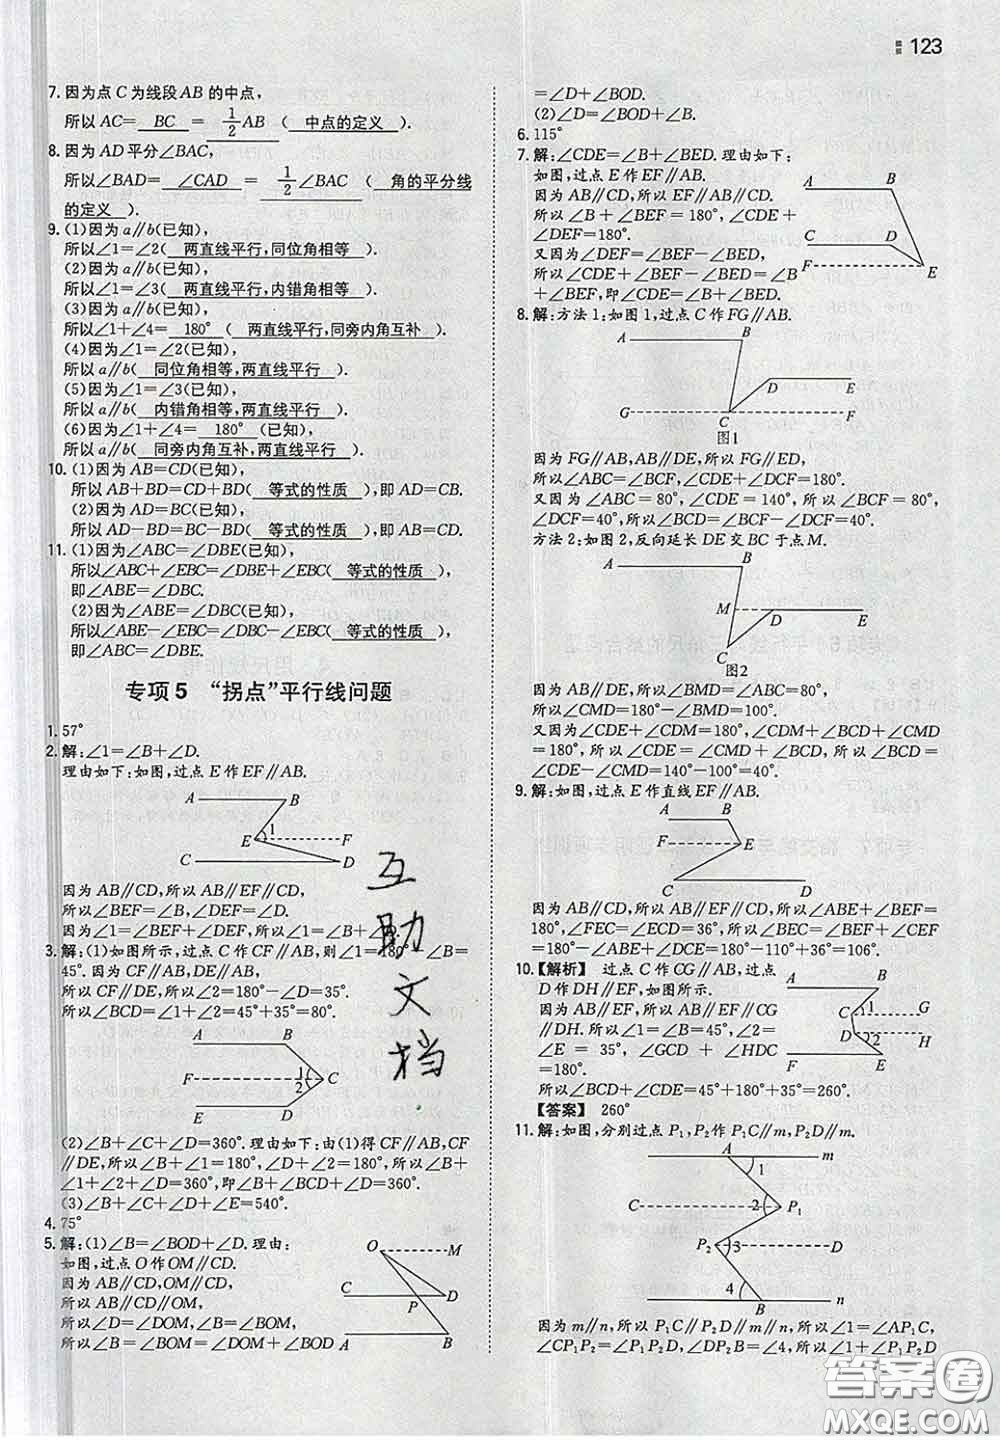 123
7.因为点C为线段AB的中点,
所以AC= BC = 1/2 AB ( 中点的定义 ).
8.因为AD平分∠BAC,
所以∠BAD= ∠CAD = 1/2 ∠BAC ( 角的平分线
的定义 ).
9.(1)因为a∥b(已知),
所以∠1=∠2( 两直线平行,同位角相等 ).
(2)因为a∥b(已知),
所以∠1=∠3( 两直线平行,内错角相等 ).
(3)因为a∥b(已知),
所以∠1+∠4= 180° ( 两直线平行,同旁内角互补 ).
(4)因为∠1=∠2(已知),
所以a∥b( 同位角相等,两直线平行 ).
(5)因为∠1=∠3(已知),
所以a∥b( 内错角相等,两直线平行 ).
(6)因为∠1+∠4= 180° (已知),
所以a∥b( 同旁内角互补,两直线平行 ).
10.(1)因为AB=CD(已知),
所以AB+BD=CD+BD( 等式的性质 ),即AD=CB.
(2)因为AD=BC(已知),
所以AD-BD=BC-BD( 等式的性质 ),即AB=CD.
11.(1)因为∠ABC=∠DBE(已知),
所以∠ABC+∠EBC=∠DBE+∠EBC( 等式的性质 ),
即∠ABE=∠DBC.
(2)因为∠ABE=∠DBC(已知),
所以∠ABE-∠EBC=∠DBC-∠EBC( 等式的性质 ),
即∠ABC=∠DBE.
专项5 “拐点”平行线问题
1.57°
2.解:∠1=∠B+∠D.
理由如下:如图,过点E作EF∥AB.
A B
E 1 F
C D
因为AB∥CD,所以AB∥EF∥CD,
所以∠BEF=∠B,∠DEF=∠D.
因为∠1=∠BEF+∠DEF,所以∠1=∠B+∠D.
3.解:(1)如图所示,过点C作CF∥AB,则∠1=180°-∠B=
45°.因为CF∥AB,DE∥AB,
所以CF∥DE,所以∠2=180°-∠D=35°.
所以∠BCD=∠1+∠2=45°+35°=80°.
A B
F 1 C
2
E D
(2)∠B+∠C+∠D=360°.理由如下:由(1)得CF∥AB,CF
∥DE,所以∠B+∠1=180°,∠D+∠2=180°,所以∠B+
∠1+∠2+∠D=360°,即∠B+∠BCD+∠D=360°.
(3)∠B+∠C+∠D+∠E=540°.
4.75°
5.解:(1)∠B=∠BOD+∠D.理由:
如图,过点O作OM∥CD.
因为AB∥CD,OM∥CD,
所以AB∥CD∥OM,
所以∠D=∠DOM,∠B=∠BOM,
所以∠B=∠BOM=∠DOM+∠BOD
O M
C P D
A B
=∠D+∠BOD.
(2)∠D=∠BOD+∠B.
6.115°
7.解:∠CDE=∠B+∠BED.理由如下:
如图,过点E作EF∥AB.
因为AB∥CD,所以EF∥AB∥CD.
所以∠B+∠BEF=180°,∠CDE+
∠DEF=180°.
又因为∠DEF=∠BEF-∠BED,
所以∠CDE+∠BEF-∠BED=∠B
+∠BEF,即∠CDE=∠B+∠BED.
A B
C D
F E
8.解:方法1:如图1,过点C作FG∥AB.
A B
D E
G C F
图1
因为FG∥AB,AB∥DE,所以FG∥ED,
所以∠ABC=∠BCF,∠CDE+∠DCF=180°.
又因为∠ABC=80°,∠CDE=140°,所以∠BCF=80°,
∠DCF=40°,所以∠BCD=∠BCF-∠DCF=40°.
方法2:如图2,反向延长DE交BC于点M.
A B
M D E
C
图2
因为AB∥DE,所以∠BMD=∠ABC=80°,
所以∠CMD=180°-∠BMD=100°.
又因为∠CDE+∠CDM=180°,∠CDM+∠CMD+∠BCD
=180°,所以∠CDE=∠CMD+∠BCD,所以∠BCD=
∠CDE-∠CMD=140°-100°=40°.
9.解:如图,过点E作直线EF∥AB.
A B
F E
C D
因为AB∥CD,所以AB∥EF∥CD,所以∠ABE+∠BEF=
180°,∠FEC=∠ECD=36°,所以∠BEC=∠BEF+∠CEF
=180°-∠ABE+∠DCE=180°-110°+36°=106°.
10.【解析】 过点C作CG∥AB,过点
D作DH∥EF,如图所示.
因为AB∥EF,所以AB∥EF∥CG
∥DH.所以∠1=∠B=45°,∠2=
∠E=35°,∠GCD+∠HDC=180°.
所以∠BCD+∠CDE=45°+180°+35°=260°.
【答案】 260°
A B
C 1 G
D 2 H
F E
11.解:如图,分别过点P₁,P₂作P₁C∥m,P₂D∥m.
A m
1
C 2 P₁
P₂ 3 D
4
B n
因为m∥n,所以P₁C∥P₂D∥m∥n,所以∠1=∠AP₁C,
∠CP₁P₂=∠P₁P₂D,∠DP₂B=∠4,所以∠1+∠P₁P₂D
互
助
文
档
答案圈
MXQE.COM